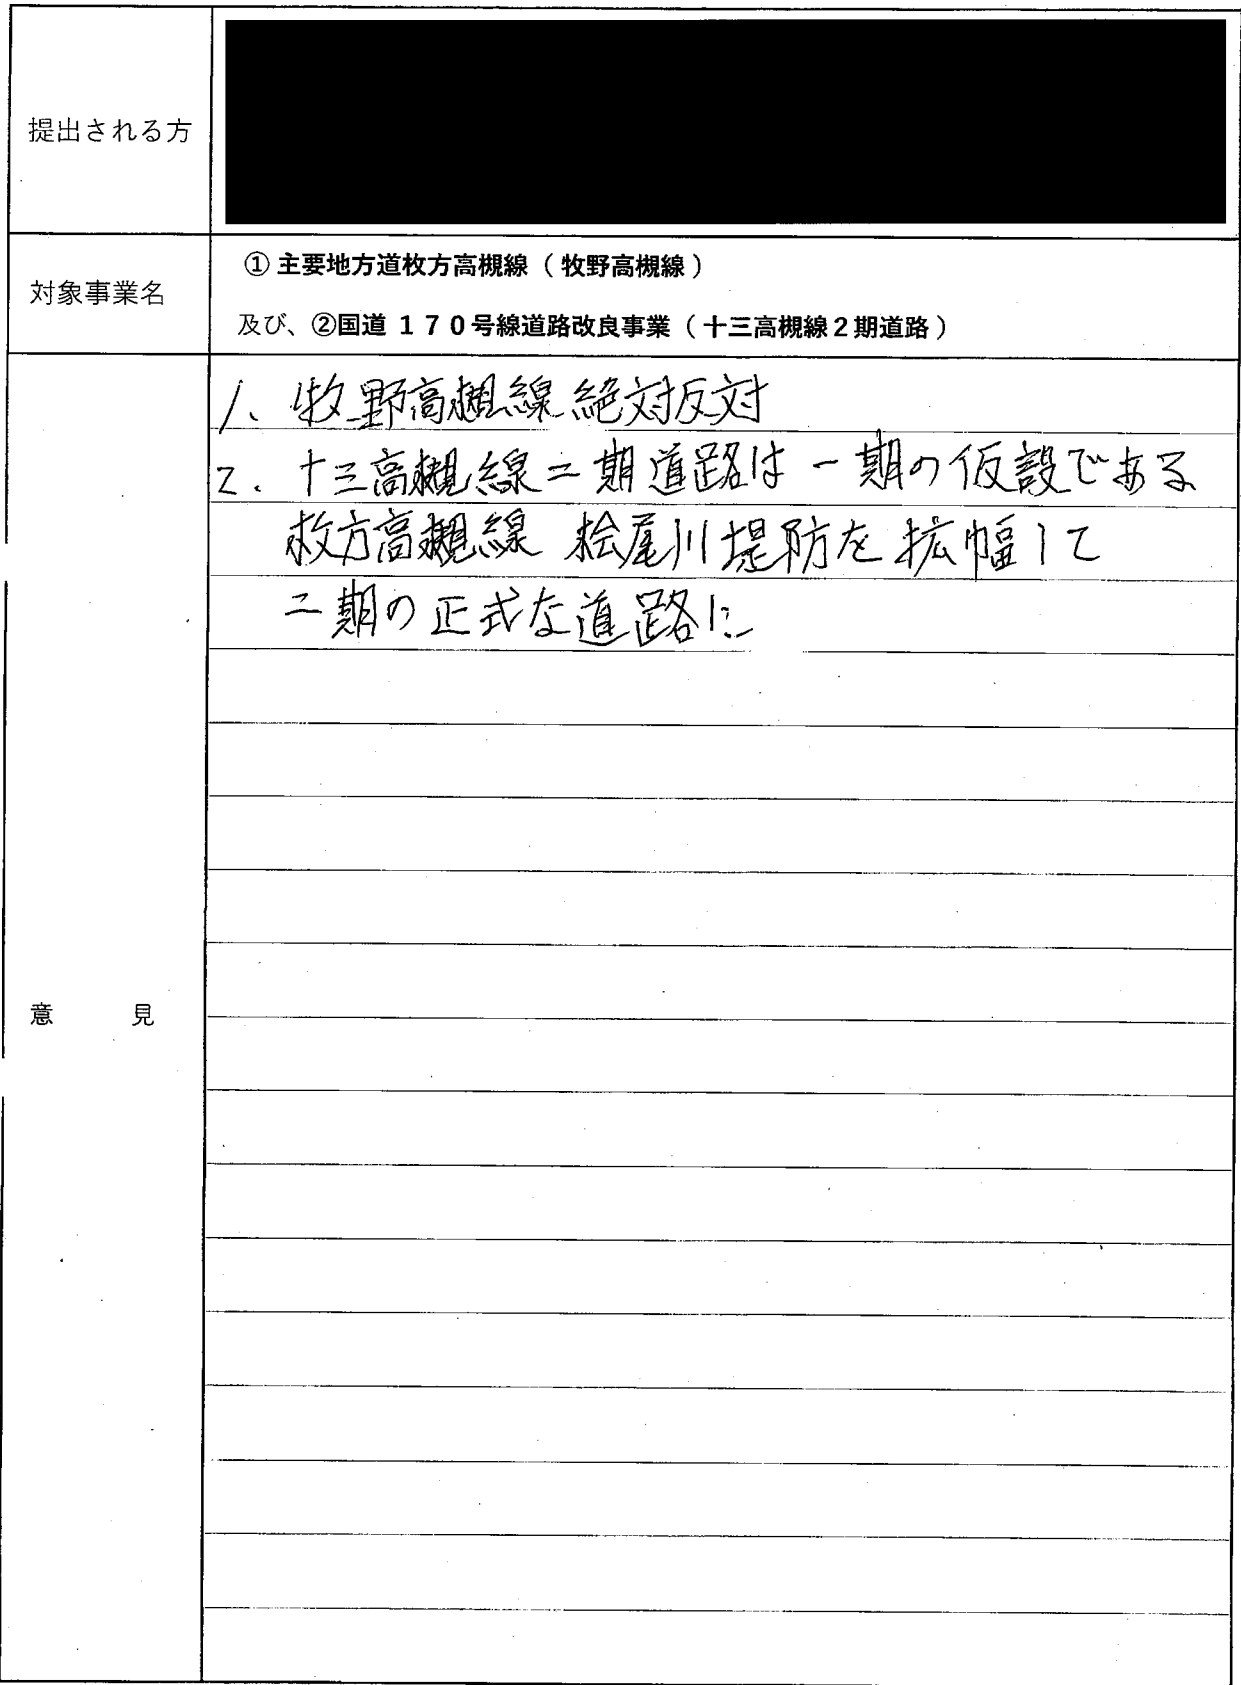 提出される方
対象事業名
①主要地方道枚方高槻線（牧野高槻線）
及び、②国道１７０号線道路改良事業（十三高槻線２期道路）
意　見
1、牧野高槻線絶対反対
2．十三高槻線二期道路は一期の仮設である
枚方高槻線 桧尾川堤防を拡幅して
二期の正式な道路に